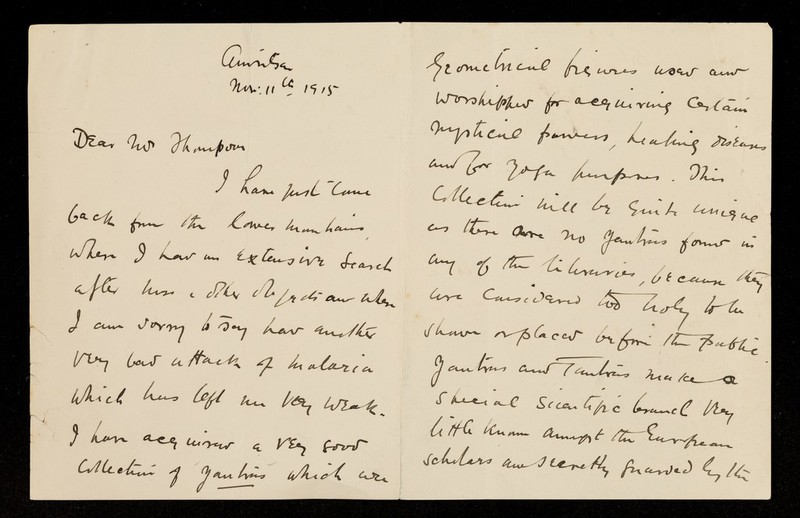 Amritsar
Nov: 11th 1915
Dear Mr Thompson
I have just come
back from the lower mountains,
where I had an extensive search
after mss & other objects and where
I am sorry to say had another
very bad attack of malaria
which has left me very weak.
I have acquired a very good
Collection of Yantras which are
geometrical figures used and
worshipped for acquiring certain
mystical powers, healing diseases
and for yoga purposes. This
Collection will be quite unique
as there are no Yantras found in
any of the libraries, because they
are considered too holy to be
shown or placed before the public.
Yantras and Tantras make a
special scientific branch very
little known amongst the European
scholars and secretly guarded by the